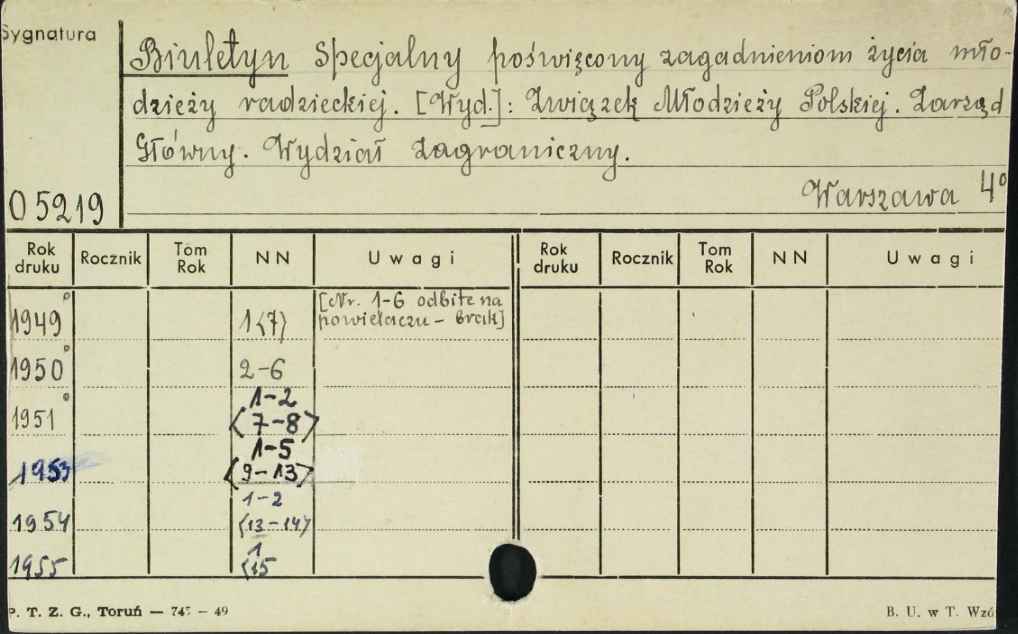 Sygnatura
Biuletyn specjalny poświęcony zagadnieniom życia mło-
dzieży radzieckiej. [Wyd.]: Związek Młodzieży Polskiej. Zarząd
Główny. Wydział Zagraniczny.
Warszawa 4°
05219
Rok druku Rocznik Tom Rok NN Uwagi Rok druku Rocznik Tom Rok NN Uwagi
1949° 1<7> [Nr. 1-6 odbite na
powielaczu - brak]
1950° 2-6
1951° 1-2
<7-8>
1953 1-5
<9-13>
1954 1-2
<13-14>
1955 1
<15
P. T. Z. G., Toruń — 747 — 49 B. U. w T. Wzó